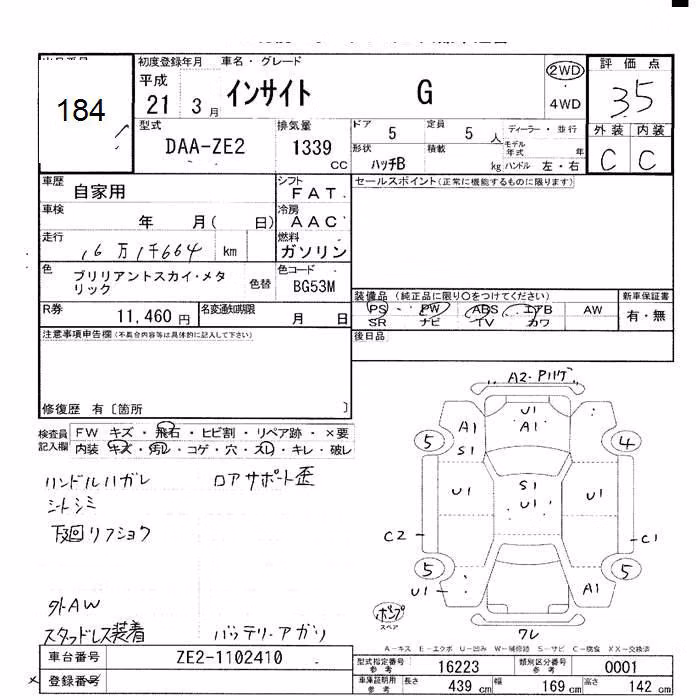 184
初度登録年月
平成
21 3 月
車名・グレード
インサイト G
2WD
4WD
評価点
3.5
外装 内装
C C
型式
DAA-ZE2
排気量
1339
CC
ドア 5
定員 5 人
ディーラー・並行
形状
ハッチB
積載
kg
モデル年式 年
ハンドル 左・右
車歴
自家用
シフト
FAT
セールスポイント(正常に機能するものに限ります)
車検
年 月( 日)
冷房
AAC
走行
16万1千664 km
燃料
ガソリン
色
ブリリアントスカイ・メタリック
色替
色コード
BG53M
R券
11,460 円
名変通知期限
月 日
装備品 (純正品に限り○をつけてください)
PS PW ABS エアB AW
SR ナビ TV カワ
新車保証書
有・無
注意事項申告欄(不具合内容等は具体的に記入して下さい)
後日品
修復歴 有〔箇所 〕
検査員記入欄
FW キズ・飛石・ヒビ割・リペア跡・×要
内装 キズ・汚レ・コゲ・穴・スレ・キレ・破レ
ハンドルハガレ ロアサポート歪
シートシミ
下回リフショク
外AW
スタッドレス装着 バッテリーアガリ
A2・Pハゲ
U1
A1
A1
S1
5
4
S1
U1
U1
U1
C2
C1
5
5
U1
A1
ポンプ
スペア
ワレ
A－キズ E－エクボ U－凹み W－補修跡 S－サビ C－腐食 XX－交換済
車台番号
ZE2-1102410
登録番号
型式指定番号
参考
16223
類別区分番号
参考
0001
車庫証明用
参考
長さ 439 cm
幅 169 cm
高さ 142 cm